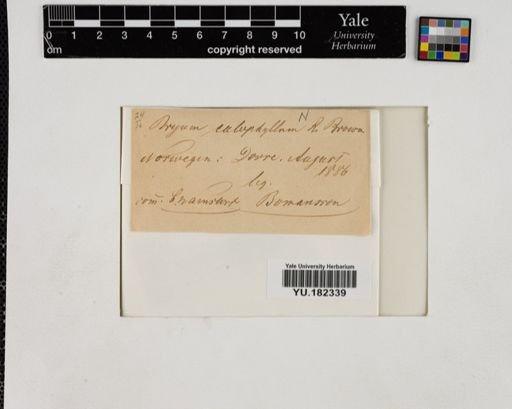 0 1 2 3 4 5 6 7 8 9 10
cm copyright reserved
Yale
University
Herbarium
N
Bryum calophyllum R. Brown
Norwegen: Dovre. August
1886
leg.
com. Bomansson
Yale University Herbarium
YU.182339